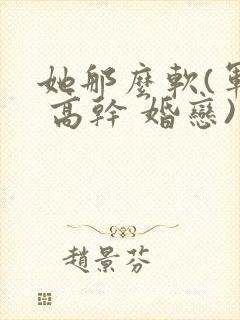 她那麼軟(軍
高幹 婚戀)
趙景芬